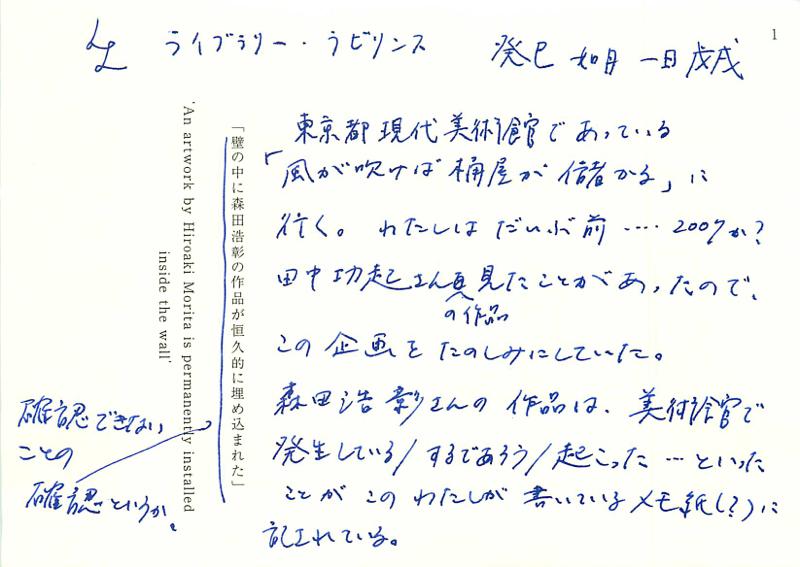 LL ライブラリー・ラビリンス 癸巳 如月 一日 戊戌
1
東京都現代美術館であっている
「風が吹けば桶屋が儲かる」に
行く。わたしはだいぶ前‥‥2007か?
田中功起さんの作品を見たことがあったので、
この企画をたのしみにしていた。
森田浩彰さんの作品は、美術館で
発生している/するであろう/起こった…といった
ことがこのわたしが書いているメモ紙(?)に
記されている。
「壁の中に森田浩彰の作品が恒久的に埋め込まれた」
'An artwork by Hiroaki Morita is permanently installed
inside the wall'
確認できない
ことの
確認というか。